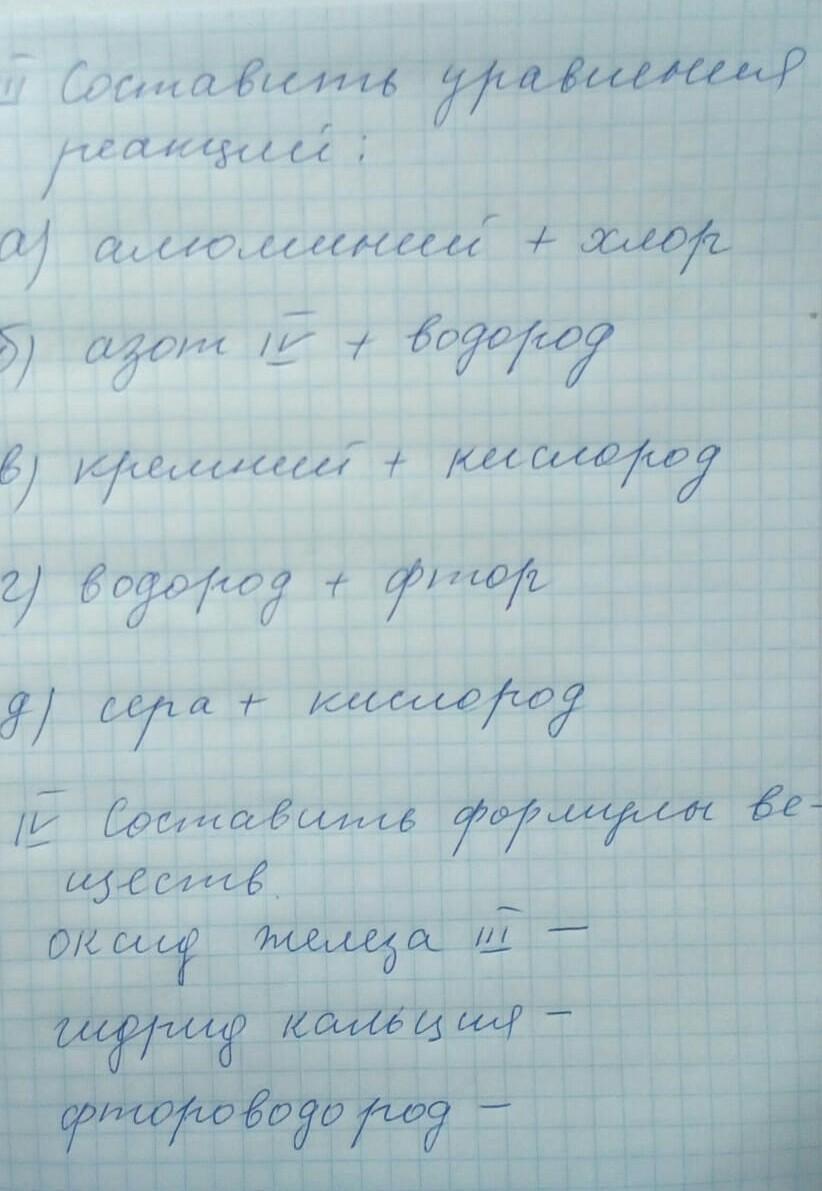 III Составить уравнения
реакций:
а) алюминий + хлор
б) азот IV + водород
в) кремний + кислород
г) водород + фтор
д) сера + кислород
IV Составить формулы ве-
ществ
оксид железа III –
гидрид кальция –
фтороводород –